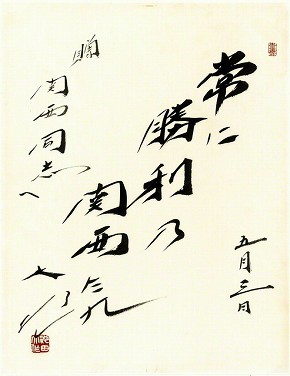 五月三日
常に
勝利乃
関西たれ
贈
関西同志へ
大作